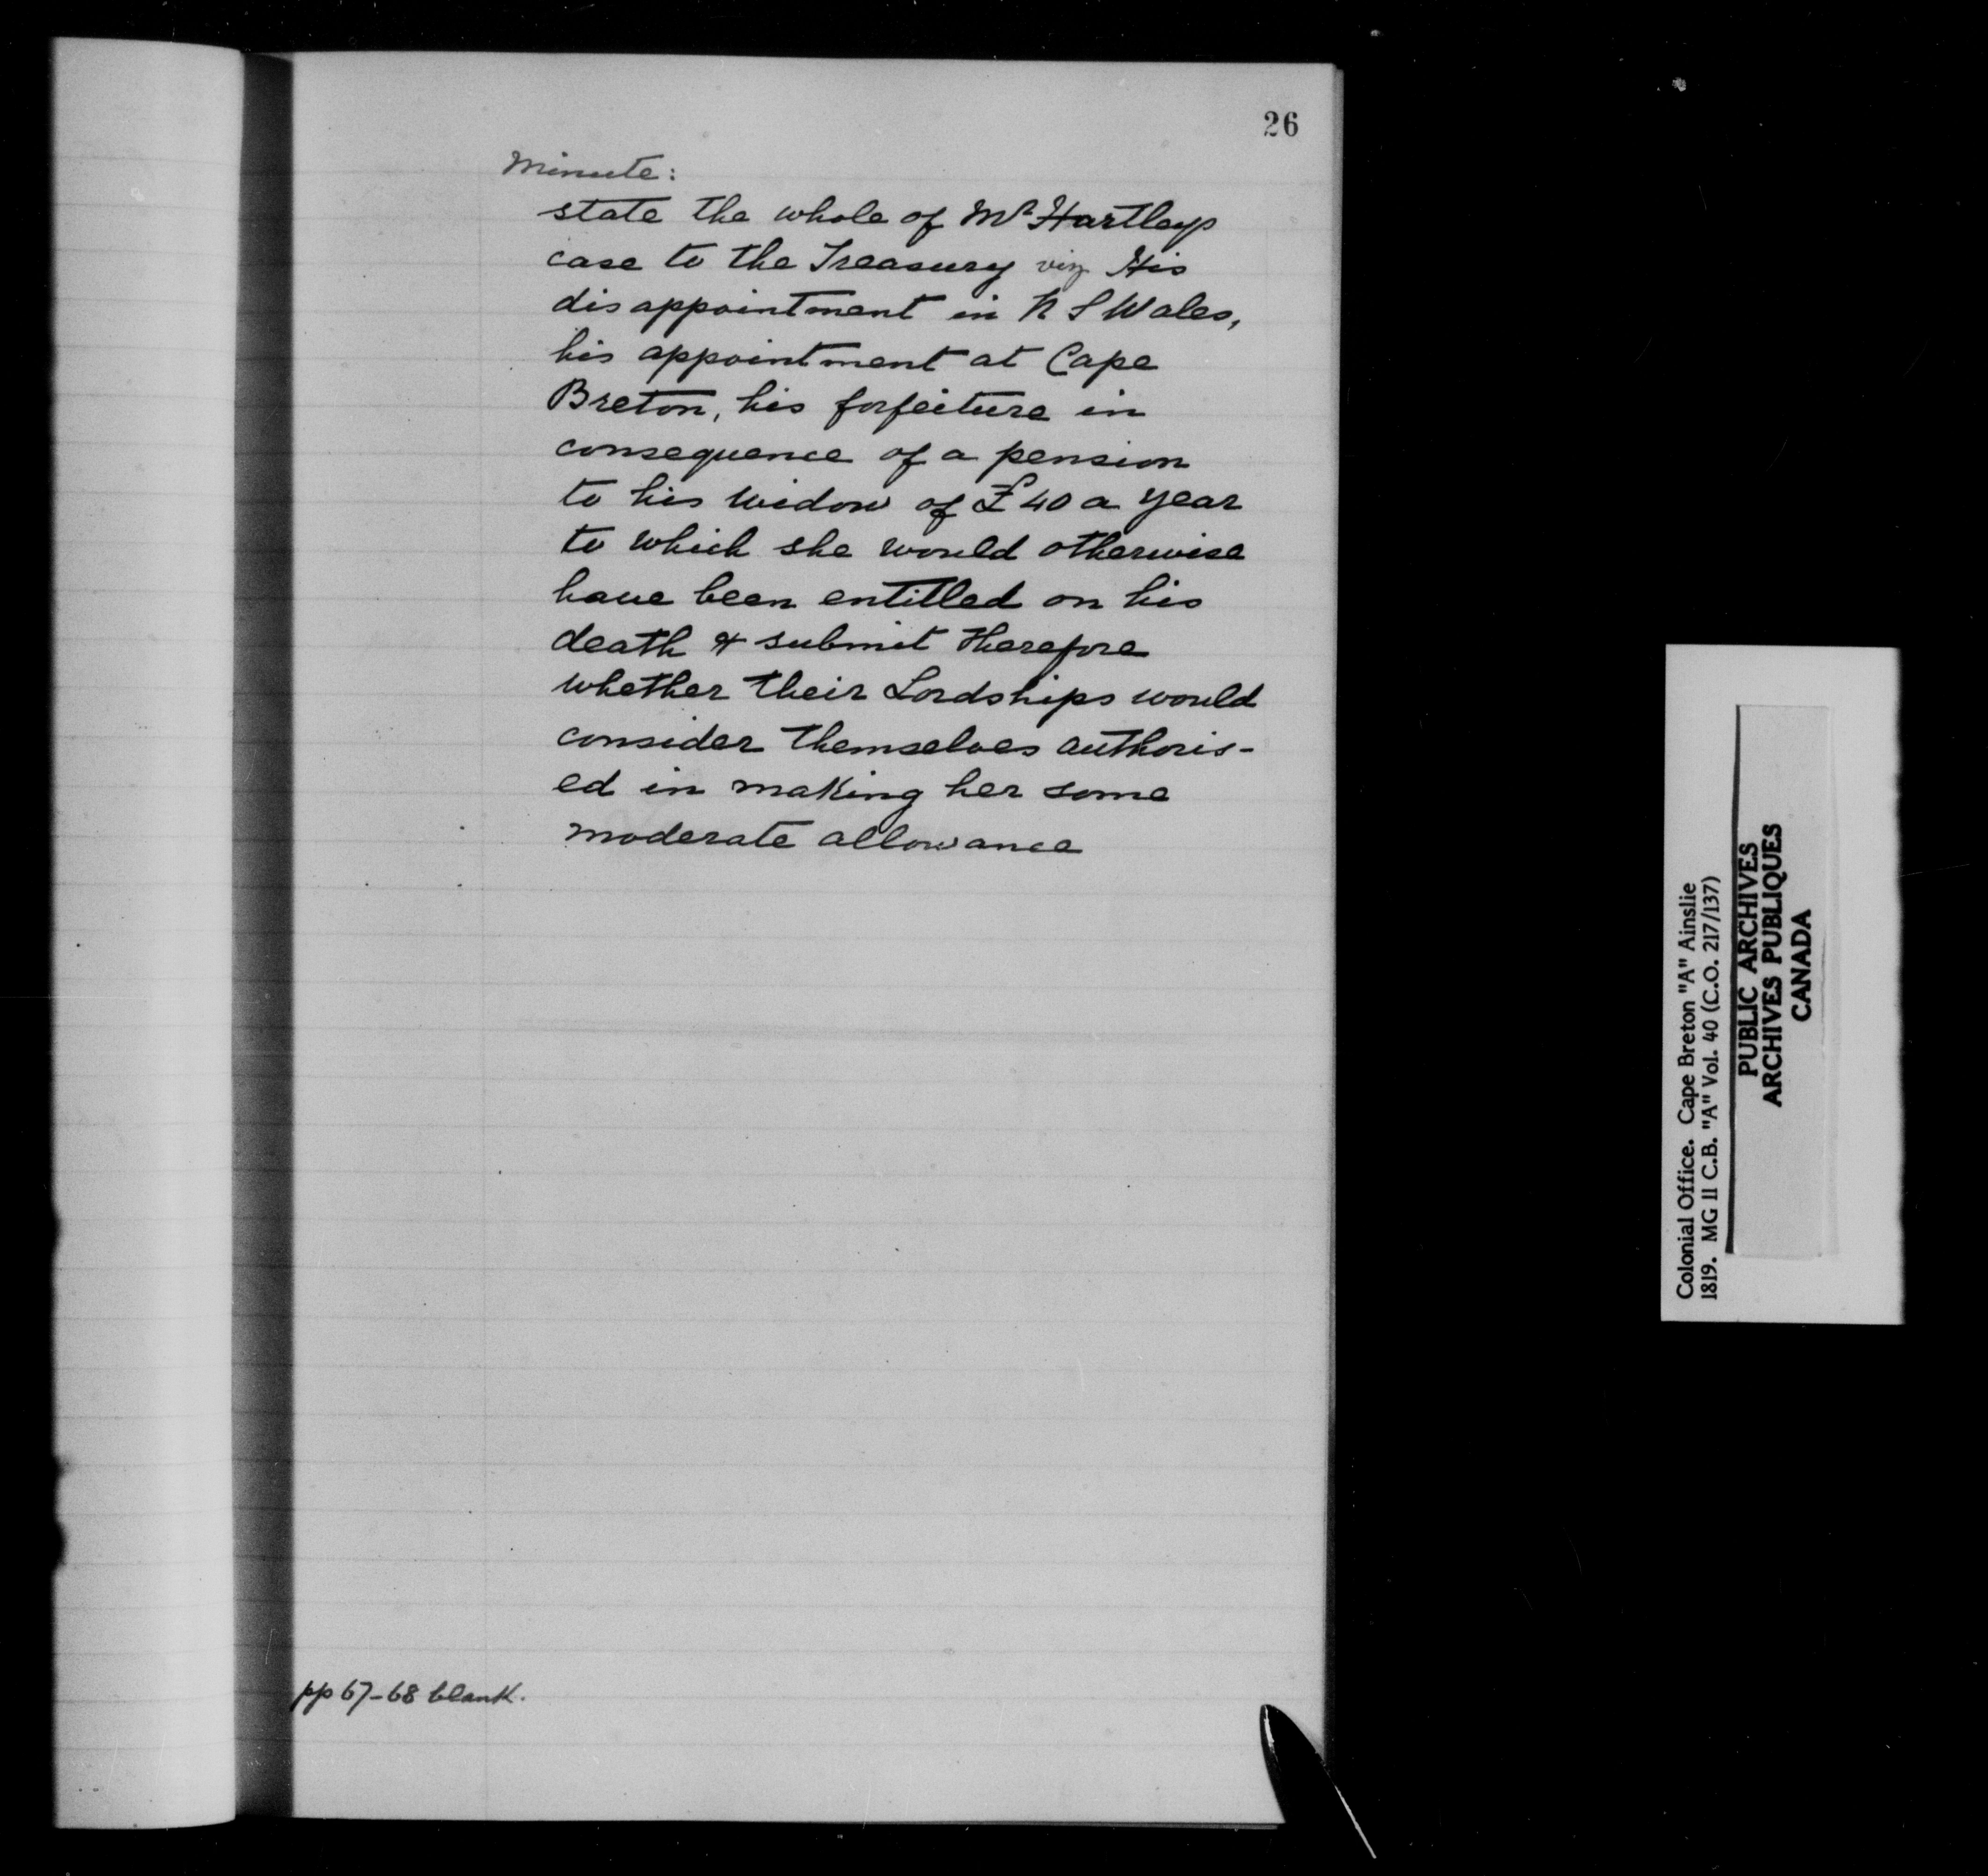 26
Minute:
state the whole of Mr Hartleys
case to the Treasury viz His
disappointment in N S Wales,
his appointment at Cape
Breton, his forfeiture in
consequence of a pension
to his widow of £40 a year
to which she would otherwise
have been entitled on his
death & submit therefore
whether their Lordships would
consider themselves authoris-
ed in making her some
moderate allowance
pp 67-68 blank.
Colonial Office. Cape Breton "A" Ainslie
1819. MG 11 C.B. "A" Vol. 40 (C.O. 217/137)
PUBLIC ARCHIVES
ARCHIVES PUBLIQUES
CANADA